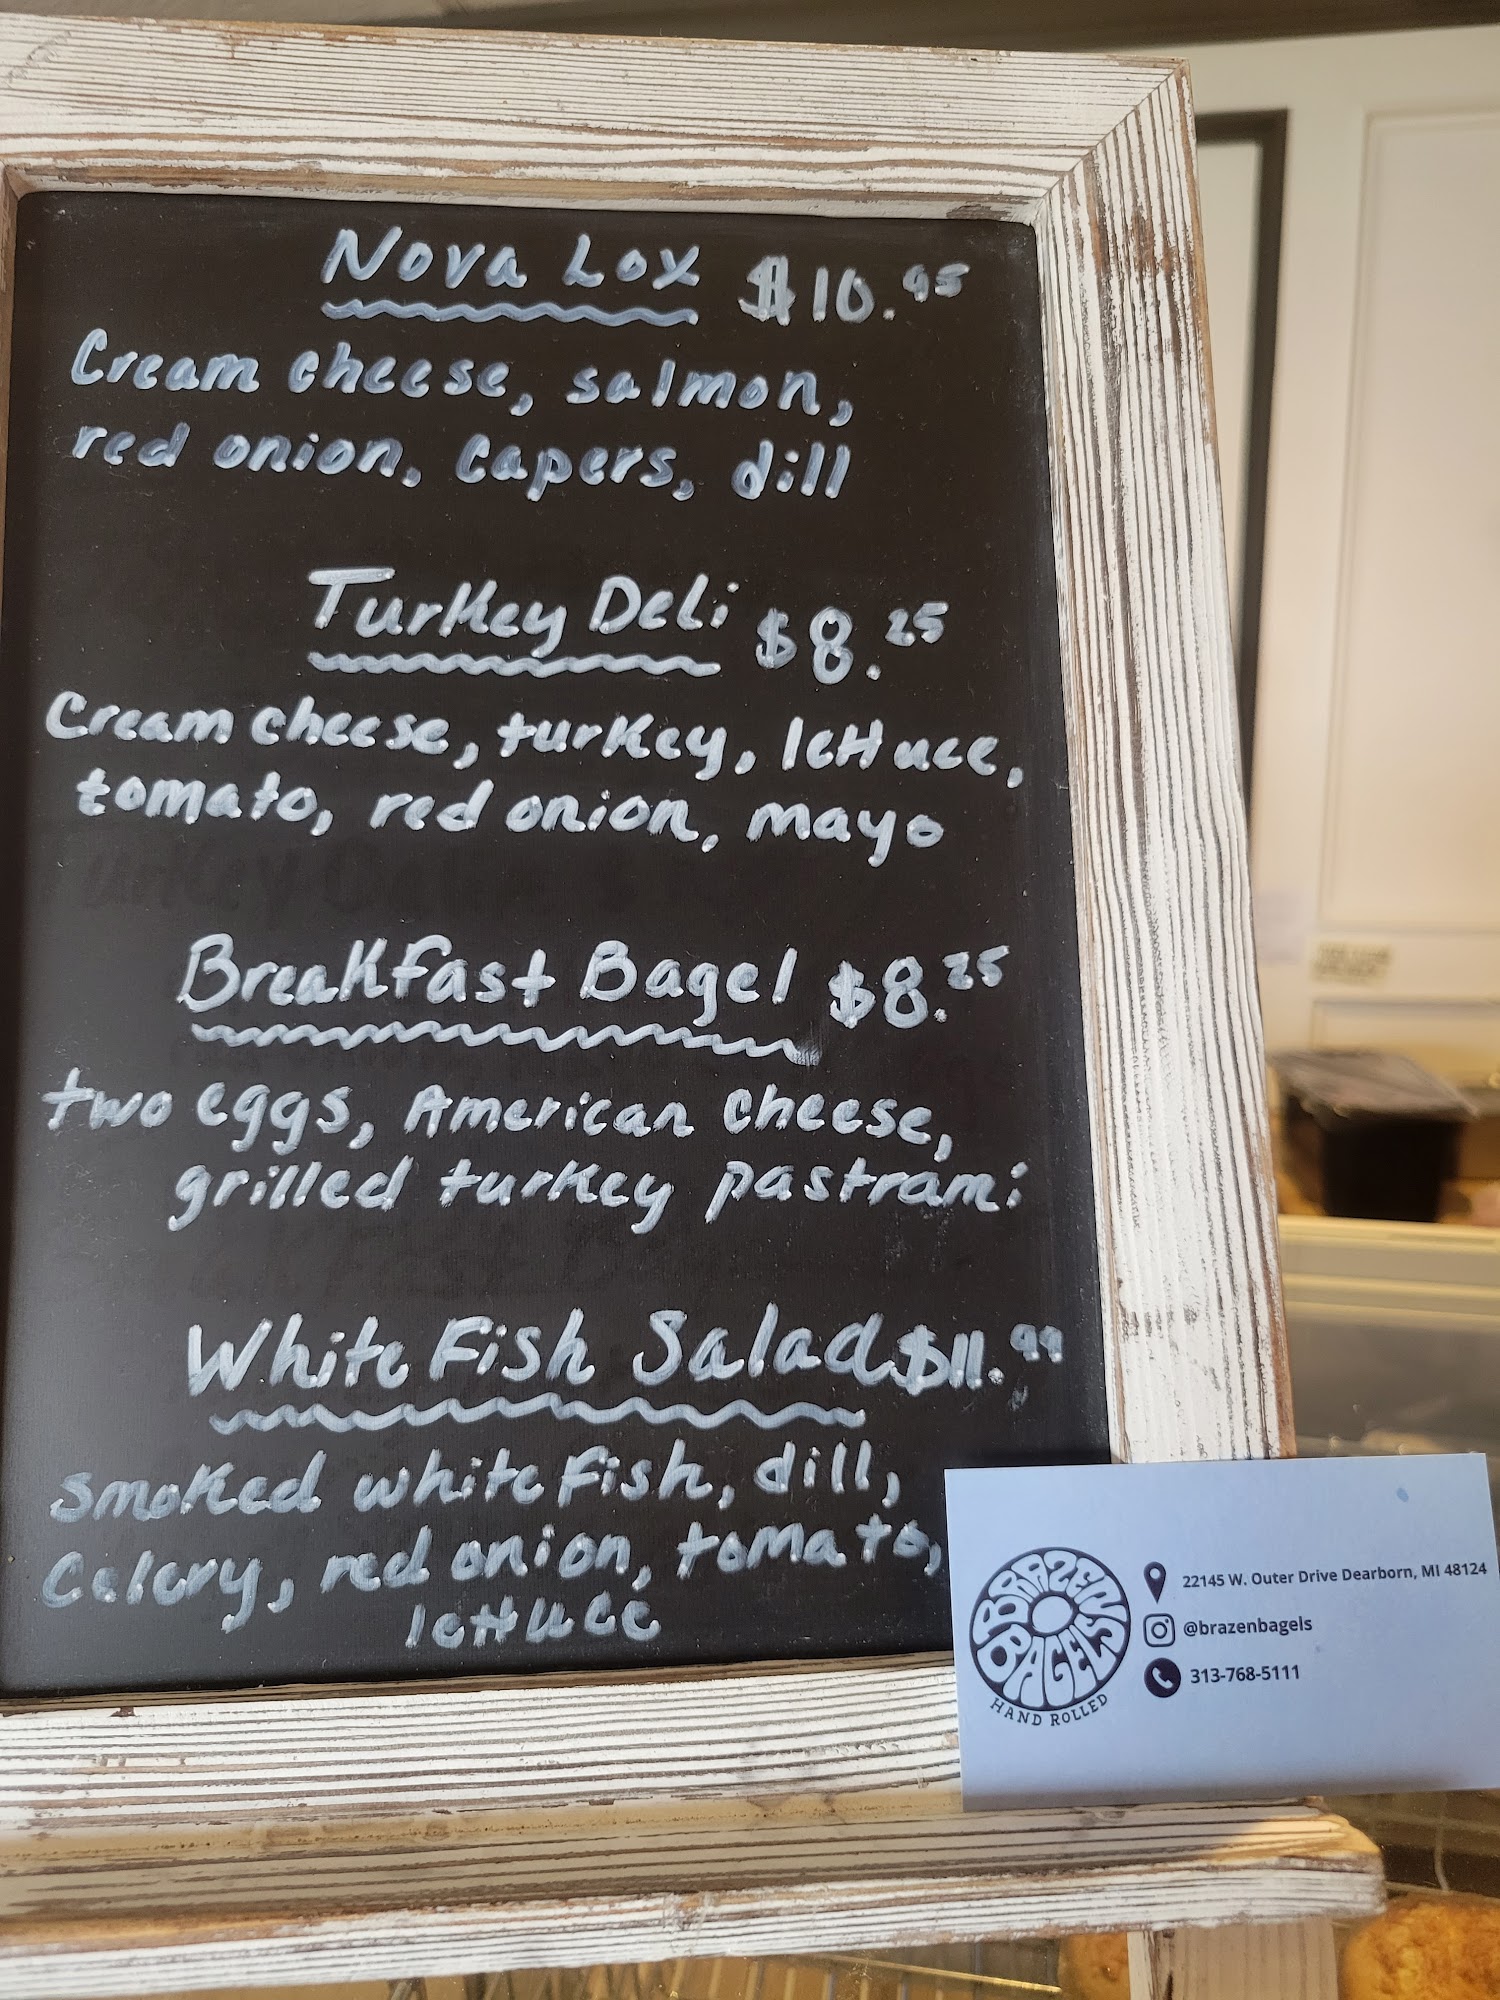 Nova Lox $10.95
Cream cheese, salmon,
red onion, capers, dill
Turkey Deli $8.25
Cream cheese, turkey, lettuce,
tomato, red onion, mayo
Breakfast Bagel $8.25
two eggs, American cheese,
grilled turkey pastrami
White Fish Salad $11.99
smoked white fish, dill,
Celery, red onion, tomato,
lettuce
BRAZEN
BAGELS
HAND ROLLED
22145 W. Outer Drive Dearborn, MI 48124
@brazenbagels
313-768-5111